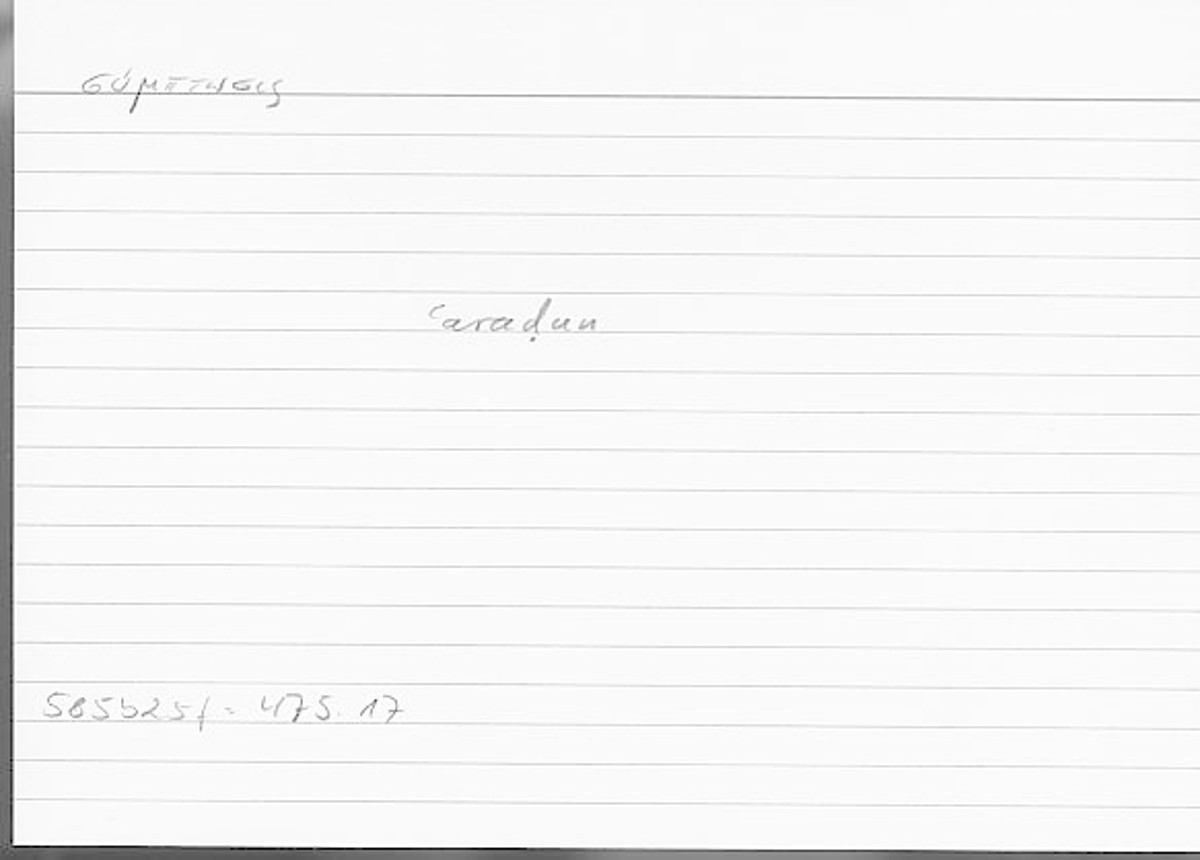 σύμπτωσις
ʿaraḍun
585b25f = 475.17